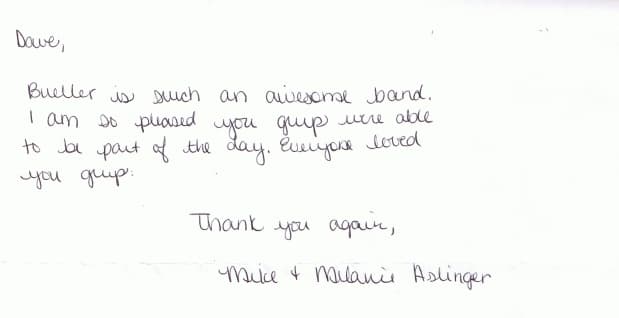 Dave,
Bueller is such an awesome band.
I am so pleased you guys were able
to be part of the day. Everyone loved
you guys.
Thank you again,
Mike + Melanie Aslinger